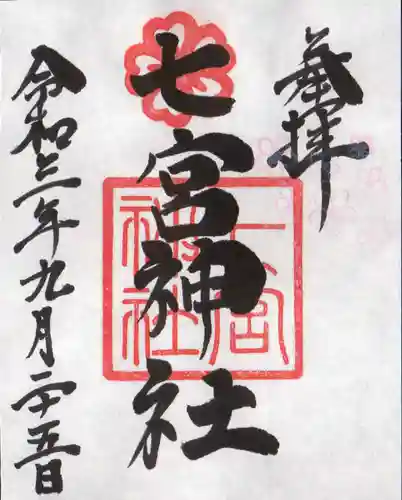 奉拝
七宮神社
七宮神社
令和三年九月二十五日